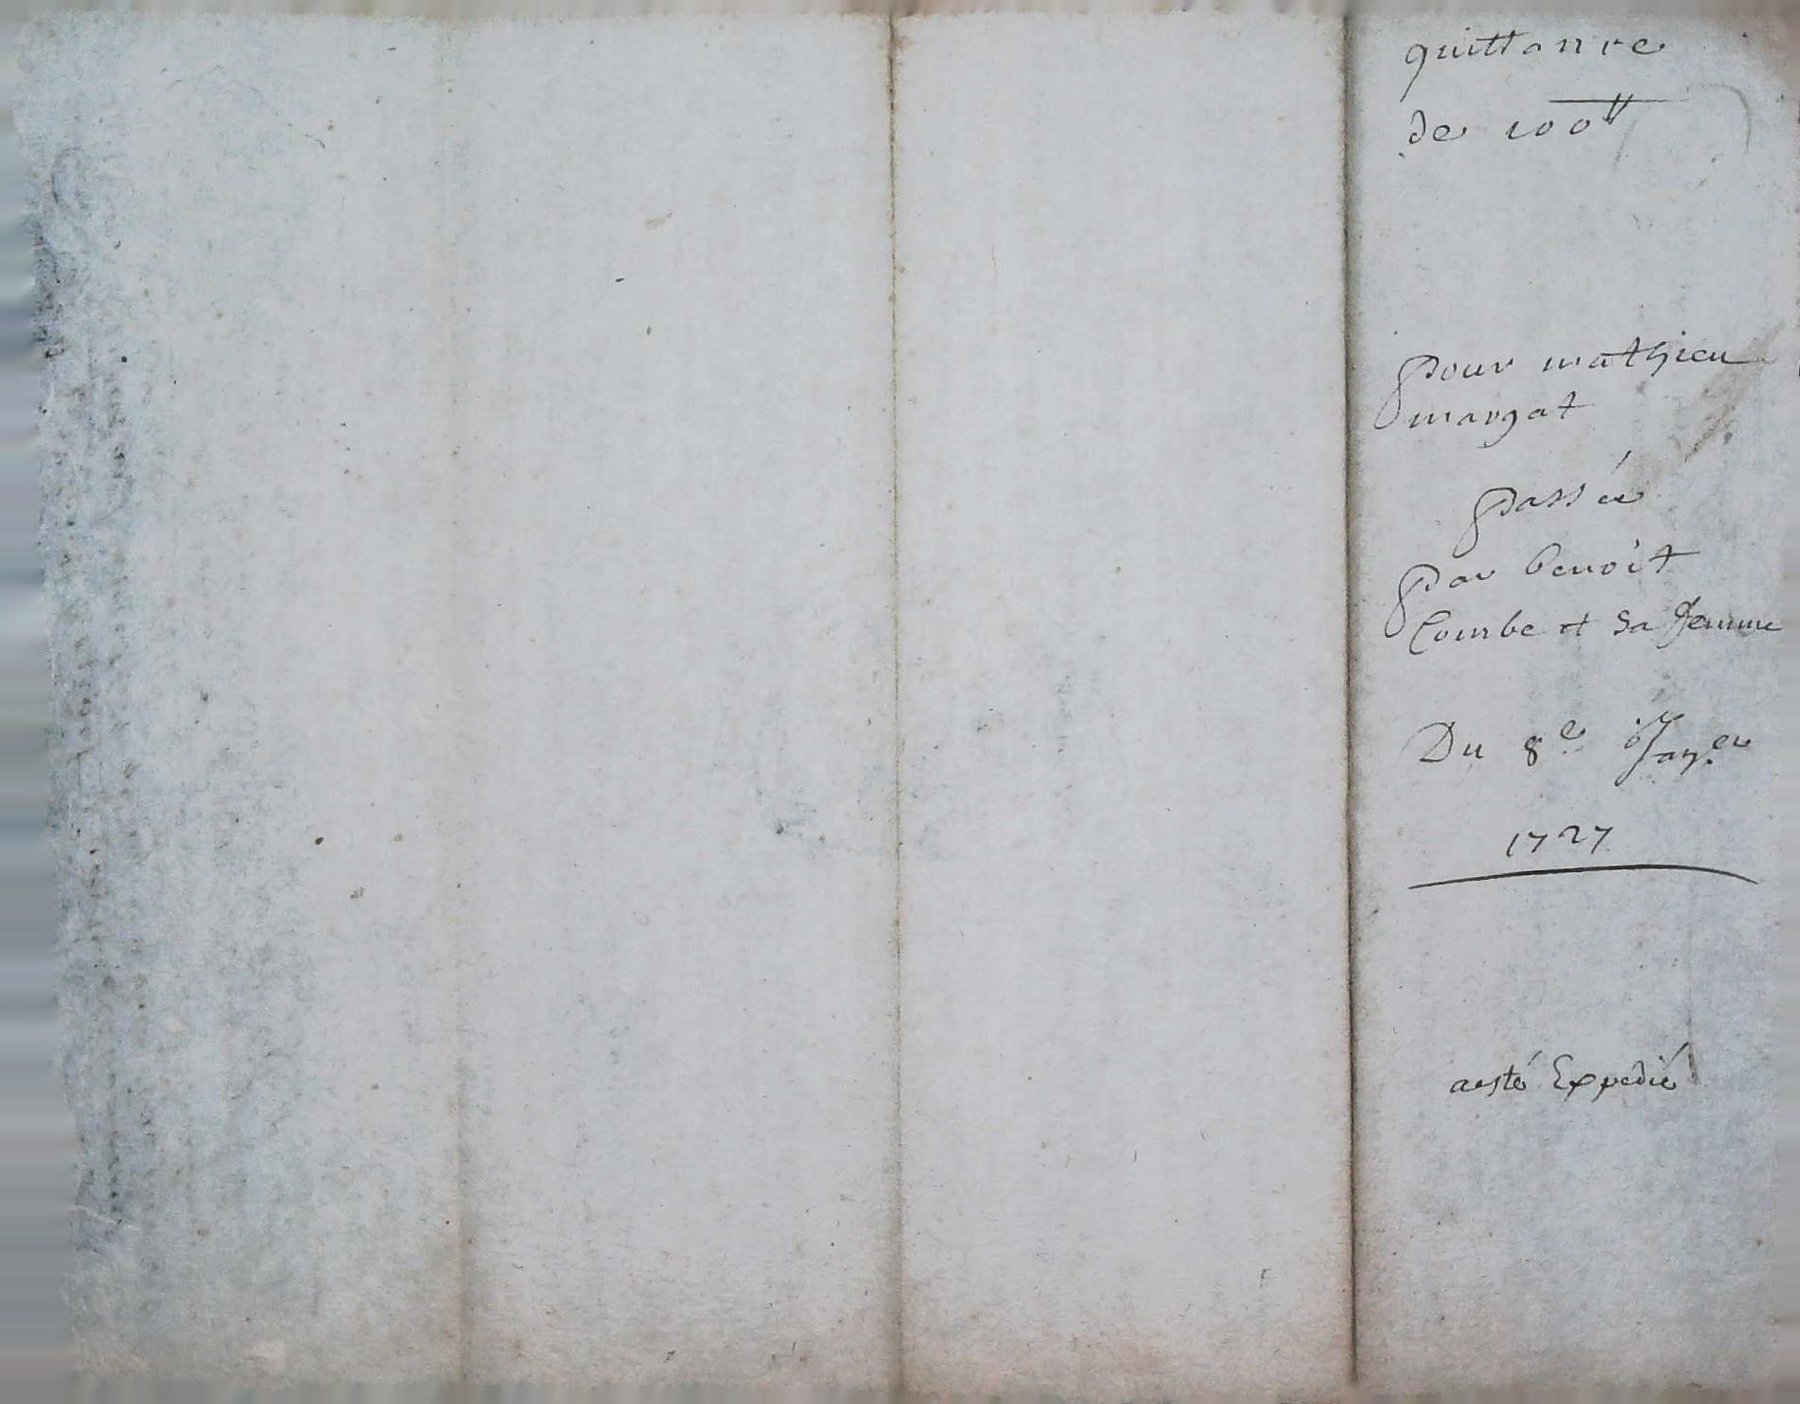 quittance
de 100 ₶
pour mathieu
margat
passée
par benoit
Combe et sa femme
Du 8e Janer
1727
aesté Expedié